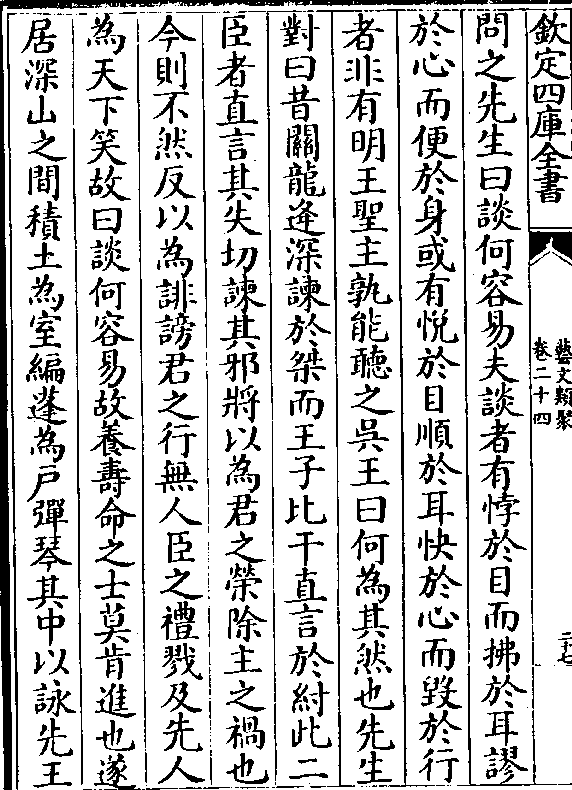 欽定四庫全書
藝文類聚
卷二十四
二十七
問之先生曰談何容易夫談者有悖於目而拂於耳謬
於心而便於身或有悅於目順於耳快於心而毀於行
者非有明王聖主孰能聽之吳王曰何為其然也先生
對曰昔關龍逄深諫於桀而王子比干直言於紂此二
臣者直言其失切諫其邪將以為君之榮除主之禍也
今則不然反以為誹謗君之行無人臣之禮戮及先人
為天下笑故曰談何容易故養壽命之士莫肯進也遂
居深山之間積土為室編蓬為戶彈琴其中以詠先王